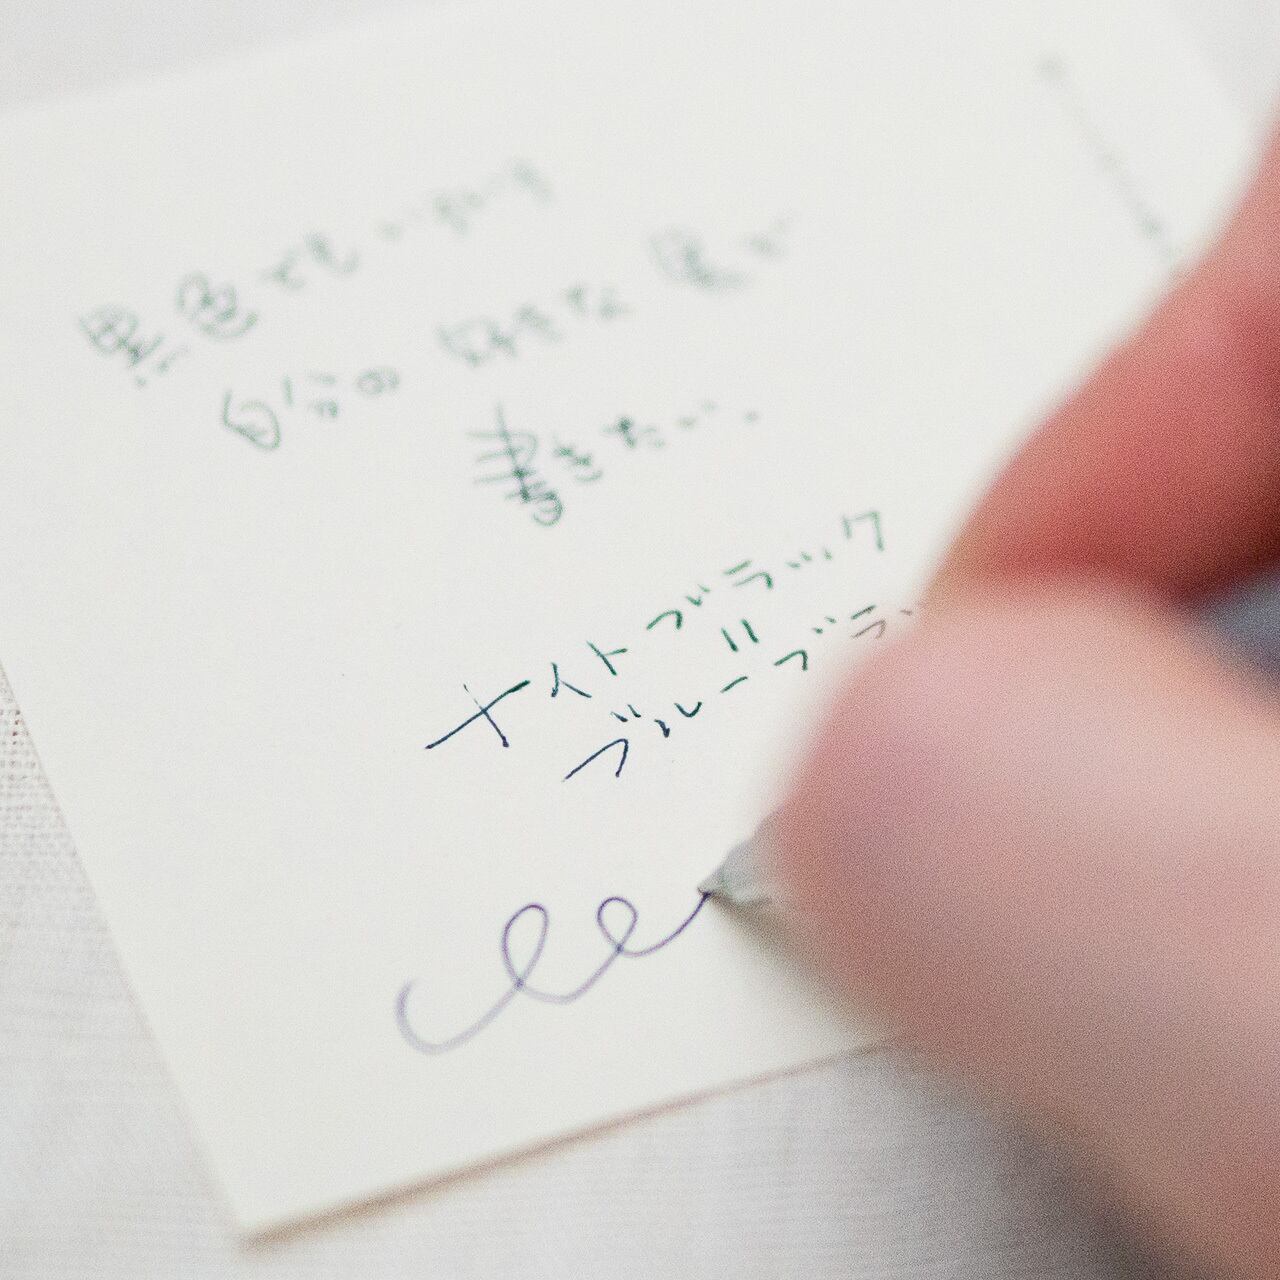 黒色でもいいけど
自分の好きな色で
書きたい。
ナイトブラック
=
ブルーブラ